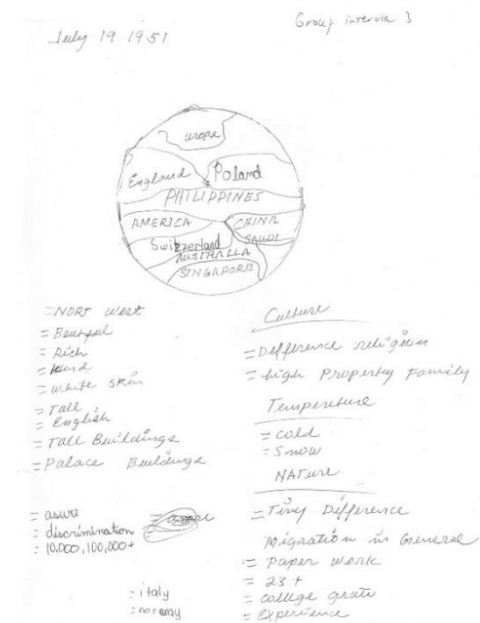 July 19 1951
Group intervie 3
urope
England
Poland
PHILIPPINES
AMERICA
CHINA
Switzerland
SAUDI
AUSTRALLA
SINGAPORE
=NORT West
= Beutyful
= Rich
= Hard
= White SKin
= Tall
= English
= Tall Buildings
= Palace Buildings
= asure
= discrimination
= 10.000, 100,000+
= italy
= norway
Culture
= Defference religion
= high Property Family
Tempereture
= cold
= Snow
NATure
= Tiny Difference
Migration in General
= Paper work
= 23 +
= college grate
= Experience